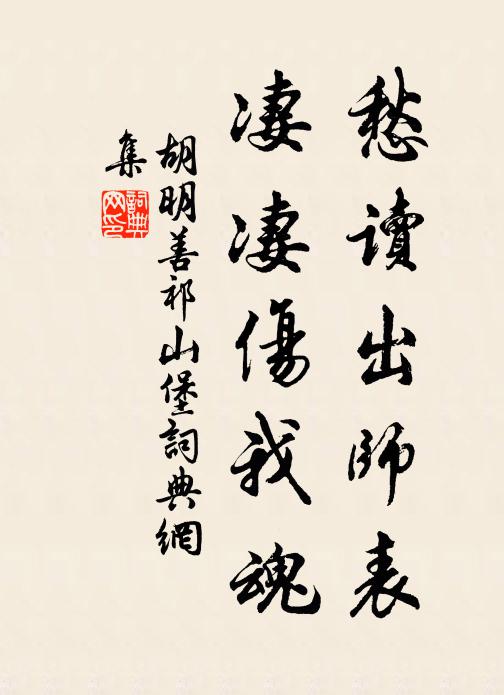 愁讀出師表
淒淒傷我魂
胡明善祁山堡詞典網
集
詞典
网印